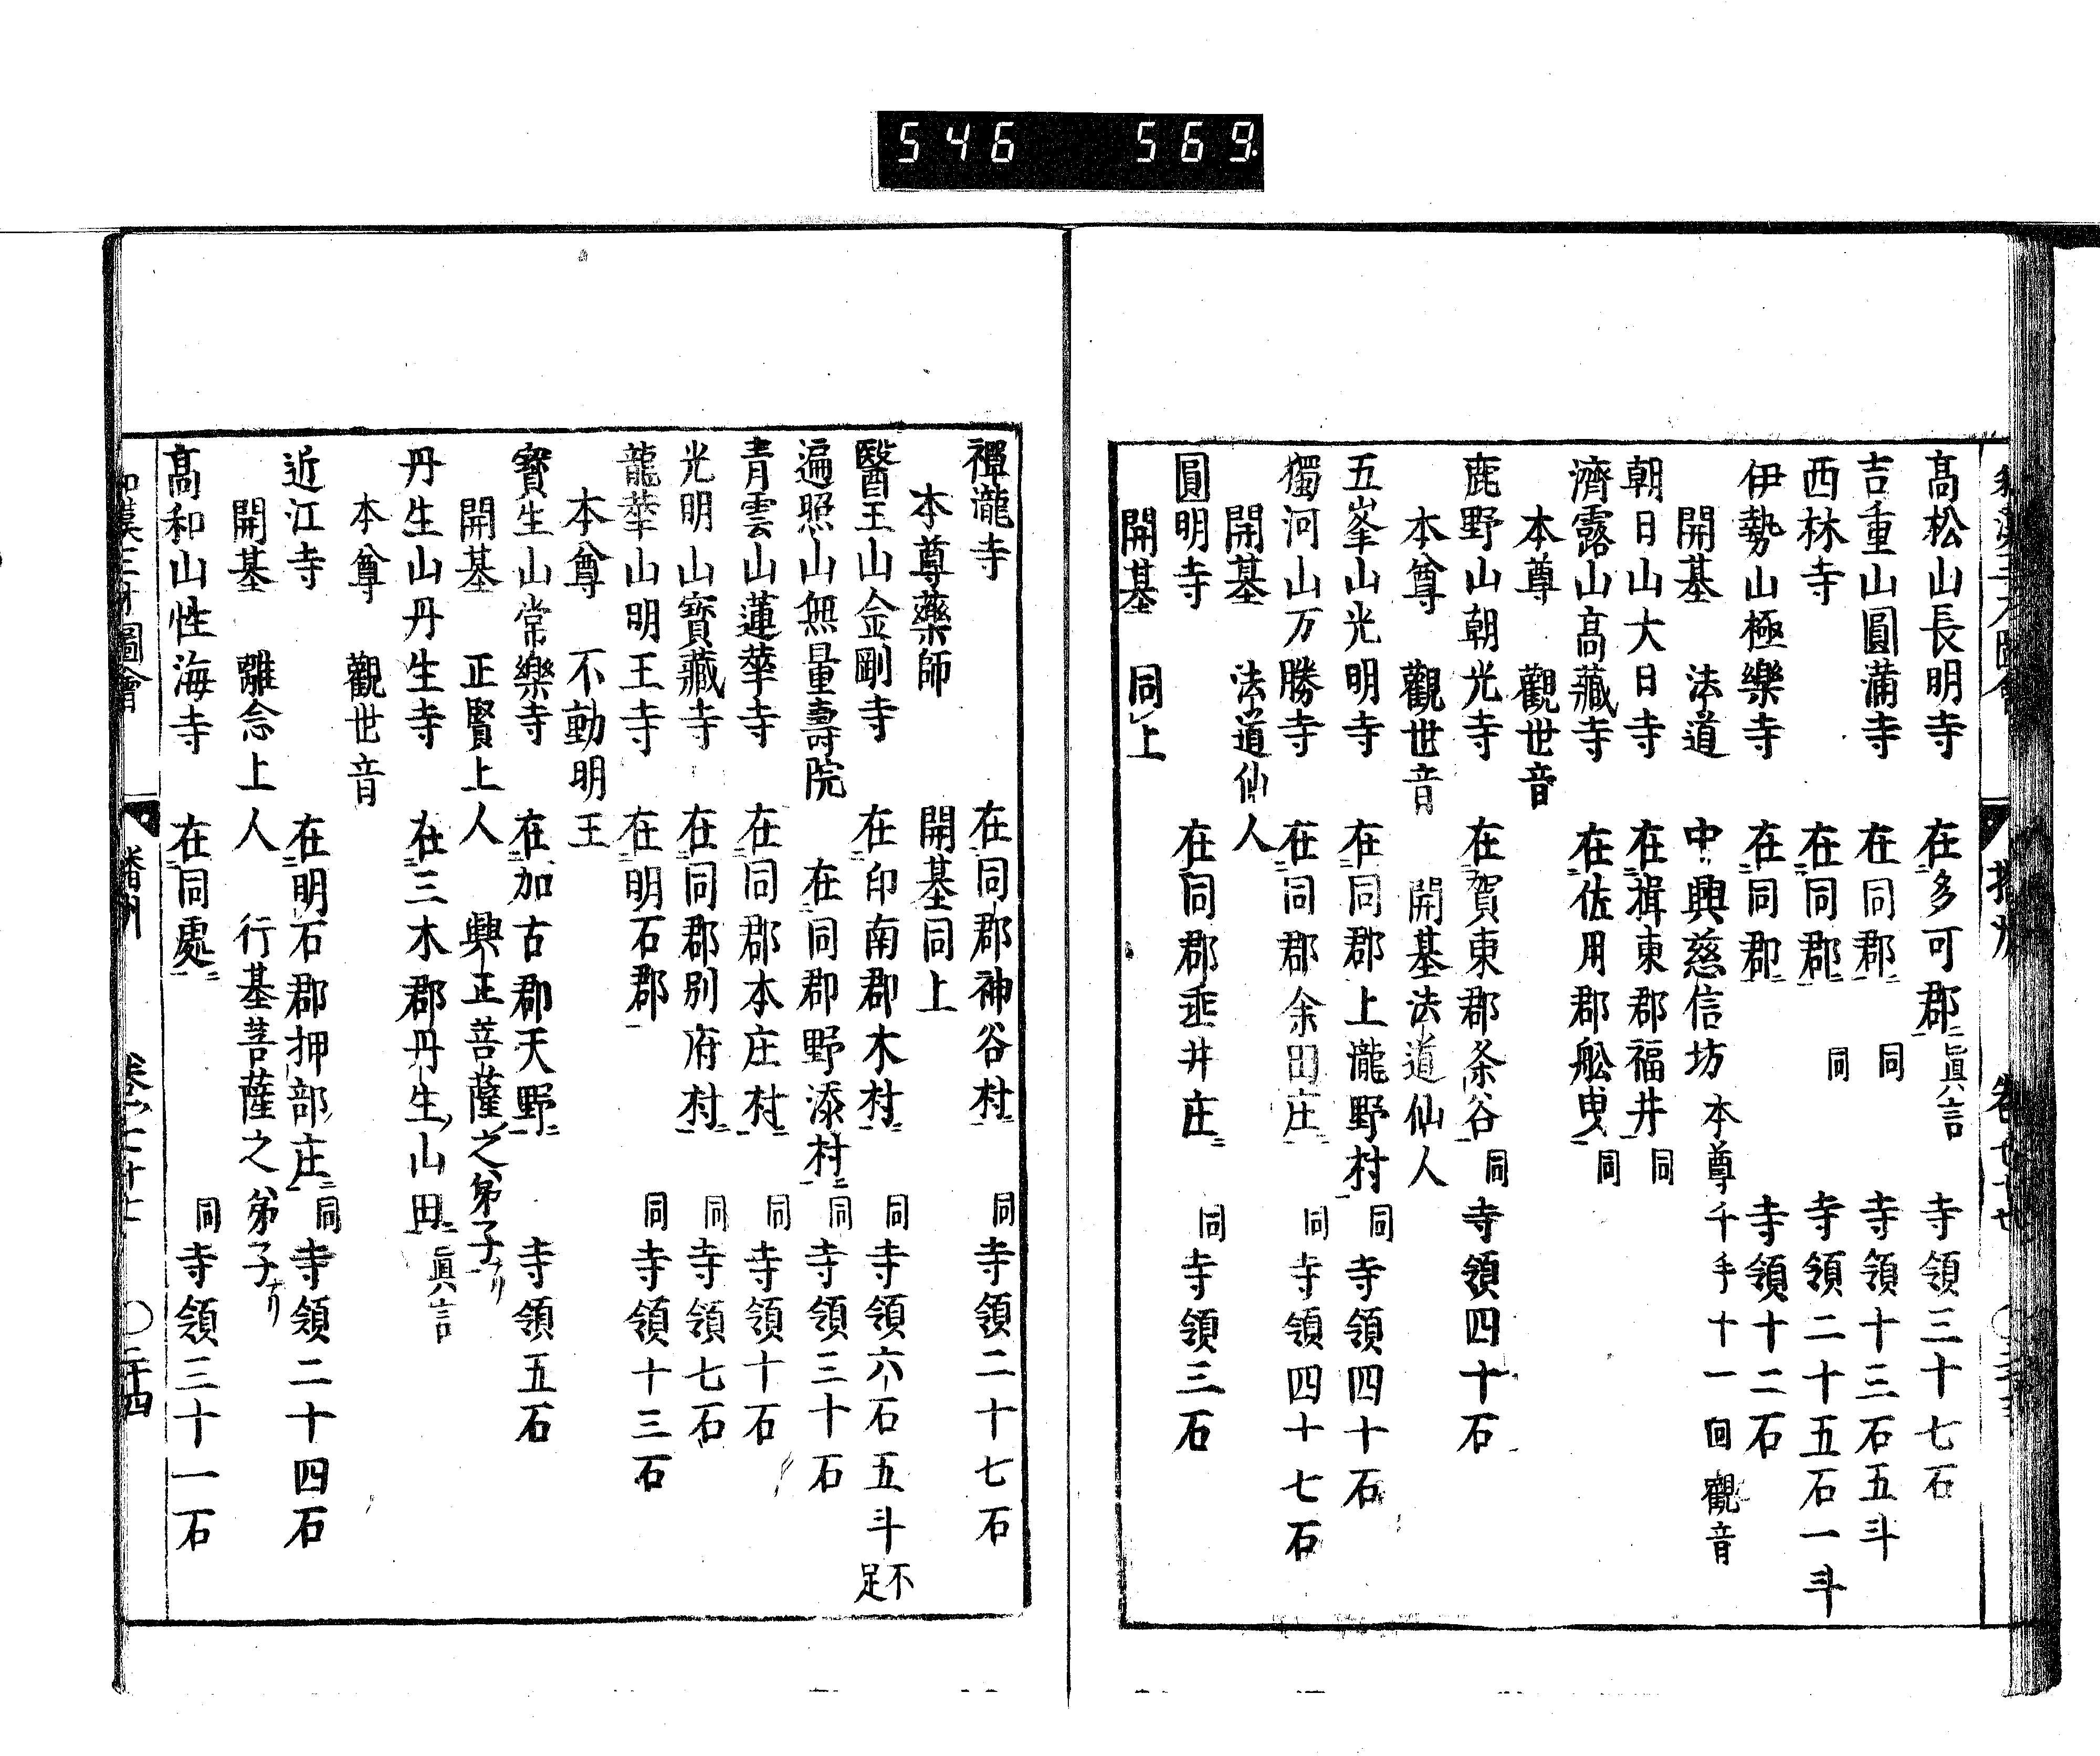 546 569.
高松山長明寺 在多可郡 眞言 寺領三十七石
吉重山圓蒲寺 在同郡 同 寺領十三石五斗
西林寺 在同郡 同 寺領二十五石一斗
伊勢山極樂寺 在同郡 寺領十二石
開基 法道 中興慈信坊 本尊千手十一面觀音
朝日山大日寺 在揖東郡福井 同
濟露山高藏寺 在佐用郡舩曳 同
本尊 觀世音
鹿野山朝光寺 在賀東郡条谷 同 寺領四十石
本尊 觀世音 開基法道仙人
五峯山光明寺 在同郡上瀧野村 同 寺領四十石
獨河山万勝寺 在同郡余田庄 同 寺領四十七石
開基 法道仙人
圓明寺 在同郡垂井庄 同 寺領三石
開基 同上
禪瀧寺 在同郡神谷村 同 寺領二十七石
本尊藥師 開基同上
醫王山金剛寺 在印南郡木村 同 寺領六石五斗不足
遍照山無量壽院 在同郡野添村 同 寺領三十石
青雲山蓮華寺 在同郡本庄村 同 寺領十石
光明山寳藏寺 在同郡別府村 同 寺領七石
龍華山明王寺 在明石郡 同 寺領十三石
本尊 不動明王
寳生山常樂寺 在加古郡天野 寺領五石
開基 正賢上人 興正菩薩之弟子ナリ
丹生山丹生寺 在三木郡丹生山田 眞言
本尊 觀世音
近江寺 在明石郡押部庄 同 寺領二十四石
開基 離念上人 行基菩薩之弟子ナリ
高和山性海寺 在同處 同 寺領三十一石
和漢三才圖會 播州 卷七十七 ○二十四